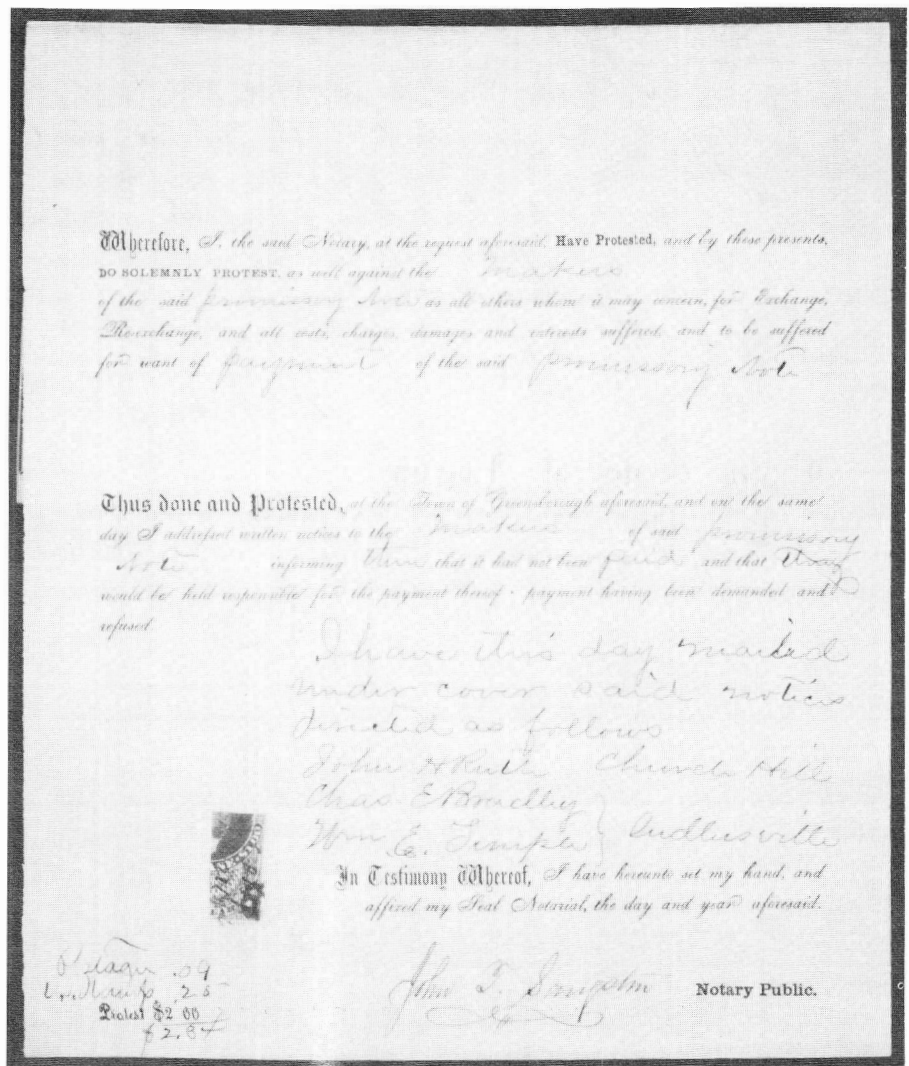 Wherefore, I, the said Notary, at the request aforesaid, Have Protested, and by these presents,
DO SOLEMNLY PROTEST, as well against the makers
of the said promissory Note as all others whom it may concern, for Exchange,
Re-exchange, and all costs, charges, damages and interests suffered, and to be suffered
for want of payment of the said promissory Note
Thus done and Protested, at the Town of Greensborough aforesaid, and on the same
day I addressed written notices to the makers of said promissory
Note informing them that it had not been paid and that they
would be held responsible for the payment thereof - payment having been demanded and
refused.
I have this day mailed
under cover said notices
directed as follows
John H Ruth Church Hill
Chas E Bradley
Wm E. Temple Sudlersville
In Testimony Whereof, I have hereunto set my hand, and
affixed my Seal Notarial, the day and year aforesaid.
Postage .09
.25
Protest $2 00
$2.34
John T. Notary Public.